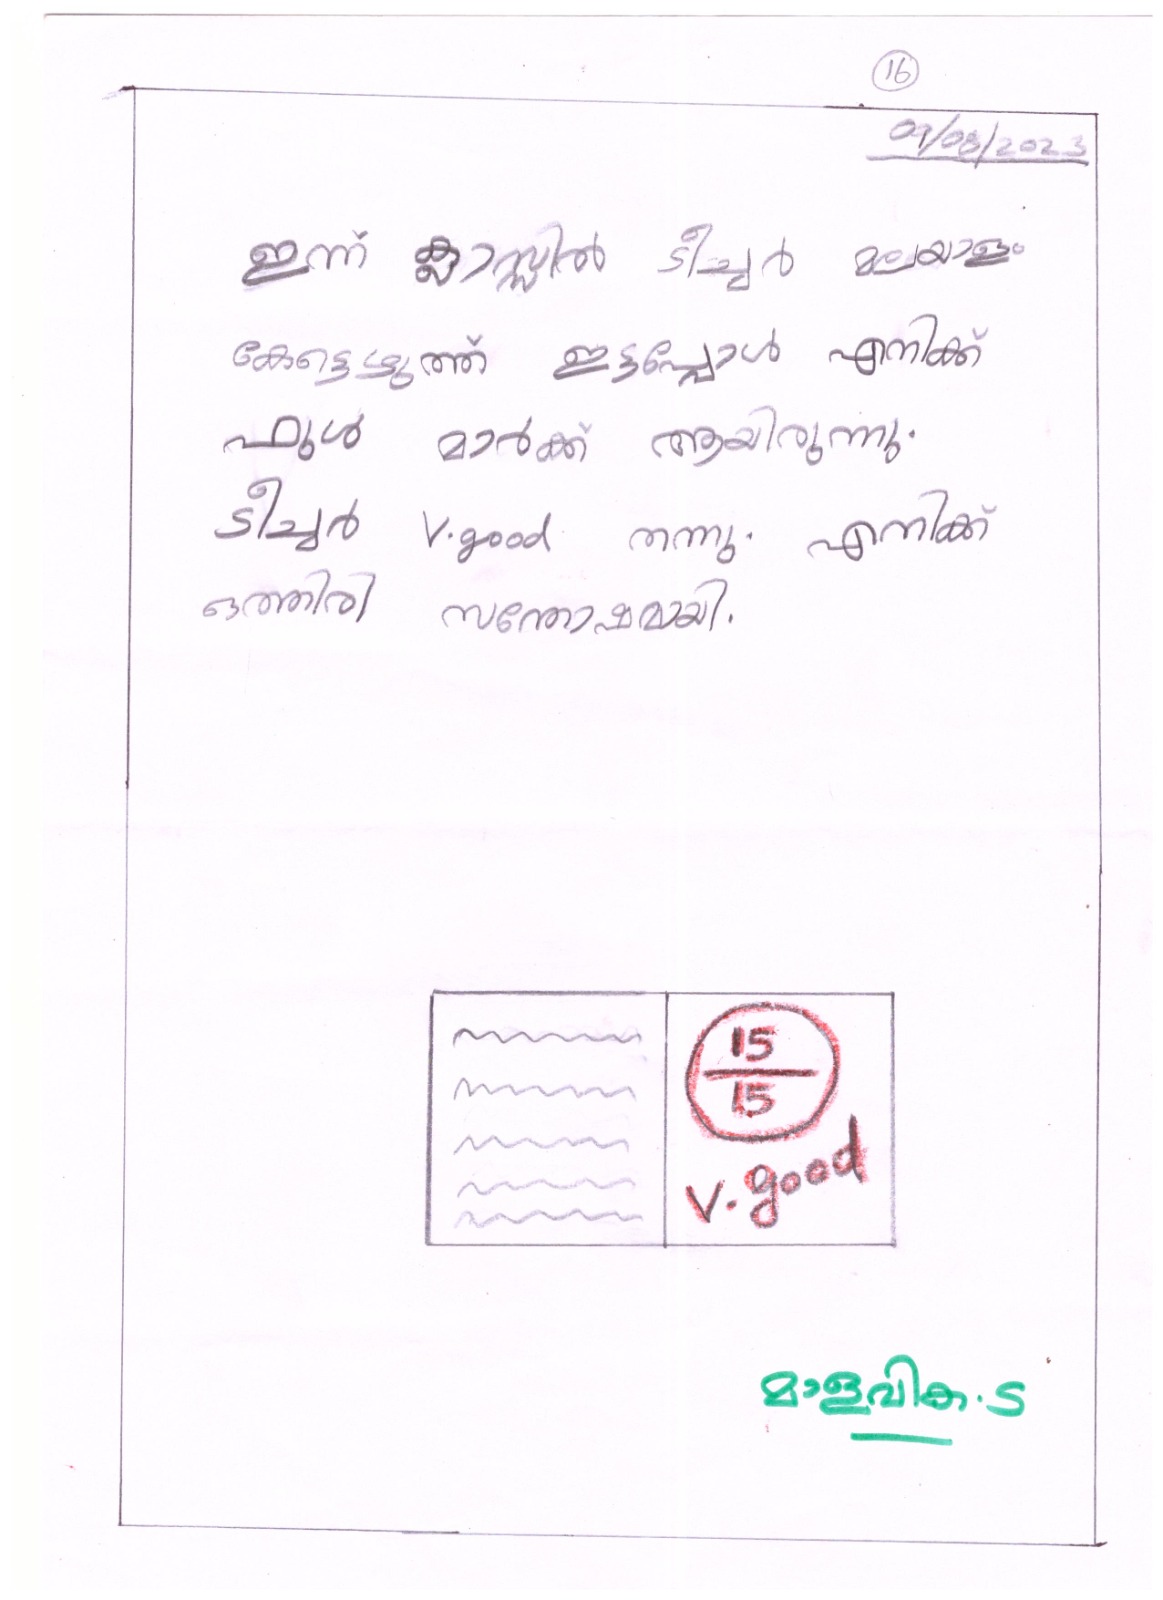 16
09/08/2023
ഇന്ന് ക്ലാസ്സിൽ ടീച്ചർ മലയാളം
കേട്ടെഴുത്ത് ഇട്ടപ്പോൾ എനിക്ക്
ഫുൾ മാർക്ക് ആയിരുന്നു.
ടീച്ചർ V.good തന്നു. എനിക്ക്
ഒത്തിരി സന്തോഷമായി.
15
15
V.good
മാളവിക. S